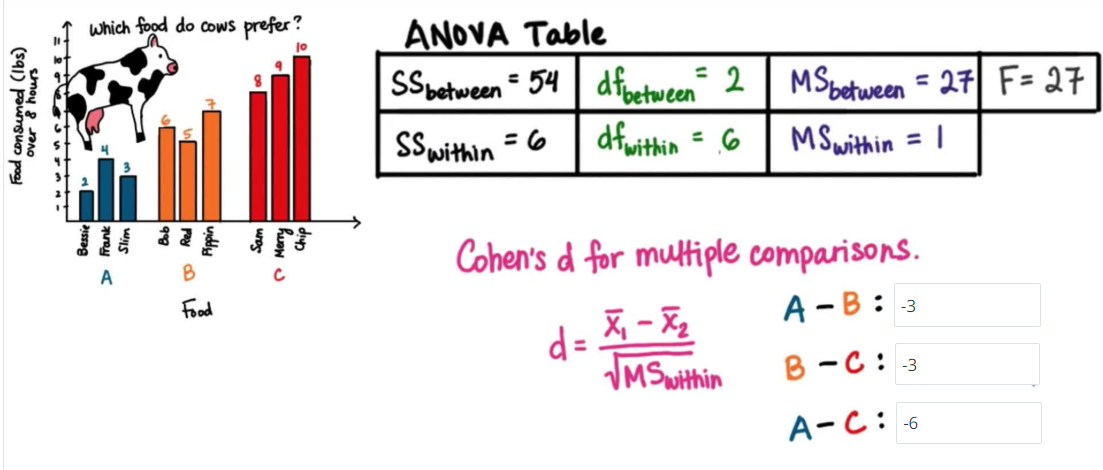 Which food do cows prefer?
Food consumed (lbs)
over 8 hours
11
10
9
8
6
5
4
3
2
1
2
4
3
6
5
7
8
9
10
Bessie
Frank
Slim
Bob
Red
Pippin
Sam
Merry
Chip
A
B
C
Food
ANOVA Table
SSbetween = 54
dfbetween = 2
MSbetween = 27
F = 27
SSwithin = 6
dfwithin = 6
MSwithin = 1
Cohen's d for multiple comparisons.
d = x̄₁ - x̄₂
√MSwithin
A - B : -3
B - C : -3
A - C : -6